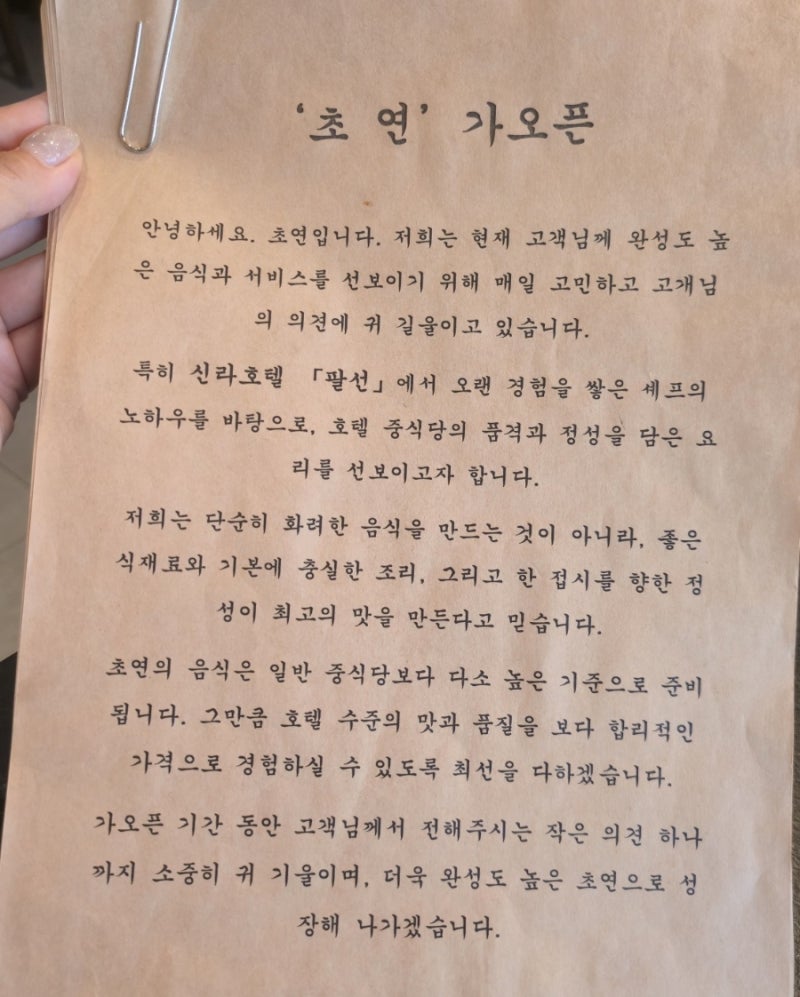 ‘초 연’ 가오픈
안녕하세요. 초연입니다. 저희는 현재 고객님께 완성도 높
은 음식과 서비스를 선보이기 위해 매일 고민하고 고개님
의 의견에 귀 길울이고 있습니다.
특히 신라호텔 「팔선」에서 오랜 경험을 쌓은 셰프의
노하우를 바탕으로, 호텔 중식당의 품격과 정성을 담은 요
리를 선보이고자 합니다.
저희는 단순히 화려한 음식을 만드는 것이 아니라, 좋은
식재료와 기본에 충실한 조리, 그리고 한 접시를 향한 정
성이 최고의 맛을 만든다고 믿습니다.
초연의 음식은 일반 중식당보다 다소 높은 기준으로 준비
됩니다. 그만큼 호텔 수준의 맛과 품질을 보다 합리적인
가격으로 경험하실 수 있도록 최선을 다하겠습니다.
가오픈 기간 동안 고객님께서 전해주시는 작은 의견 하나
까지 소중히 귀 기울이며, 더욱 완성도 높은 초연으로 성
장해 나가겠습니다.